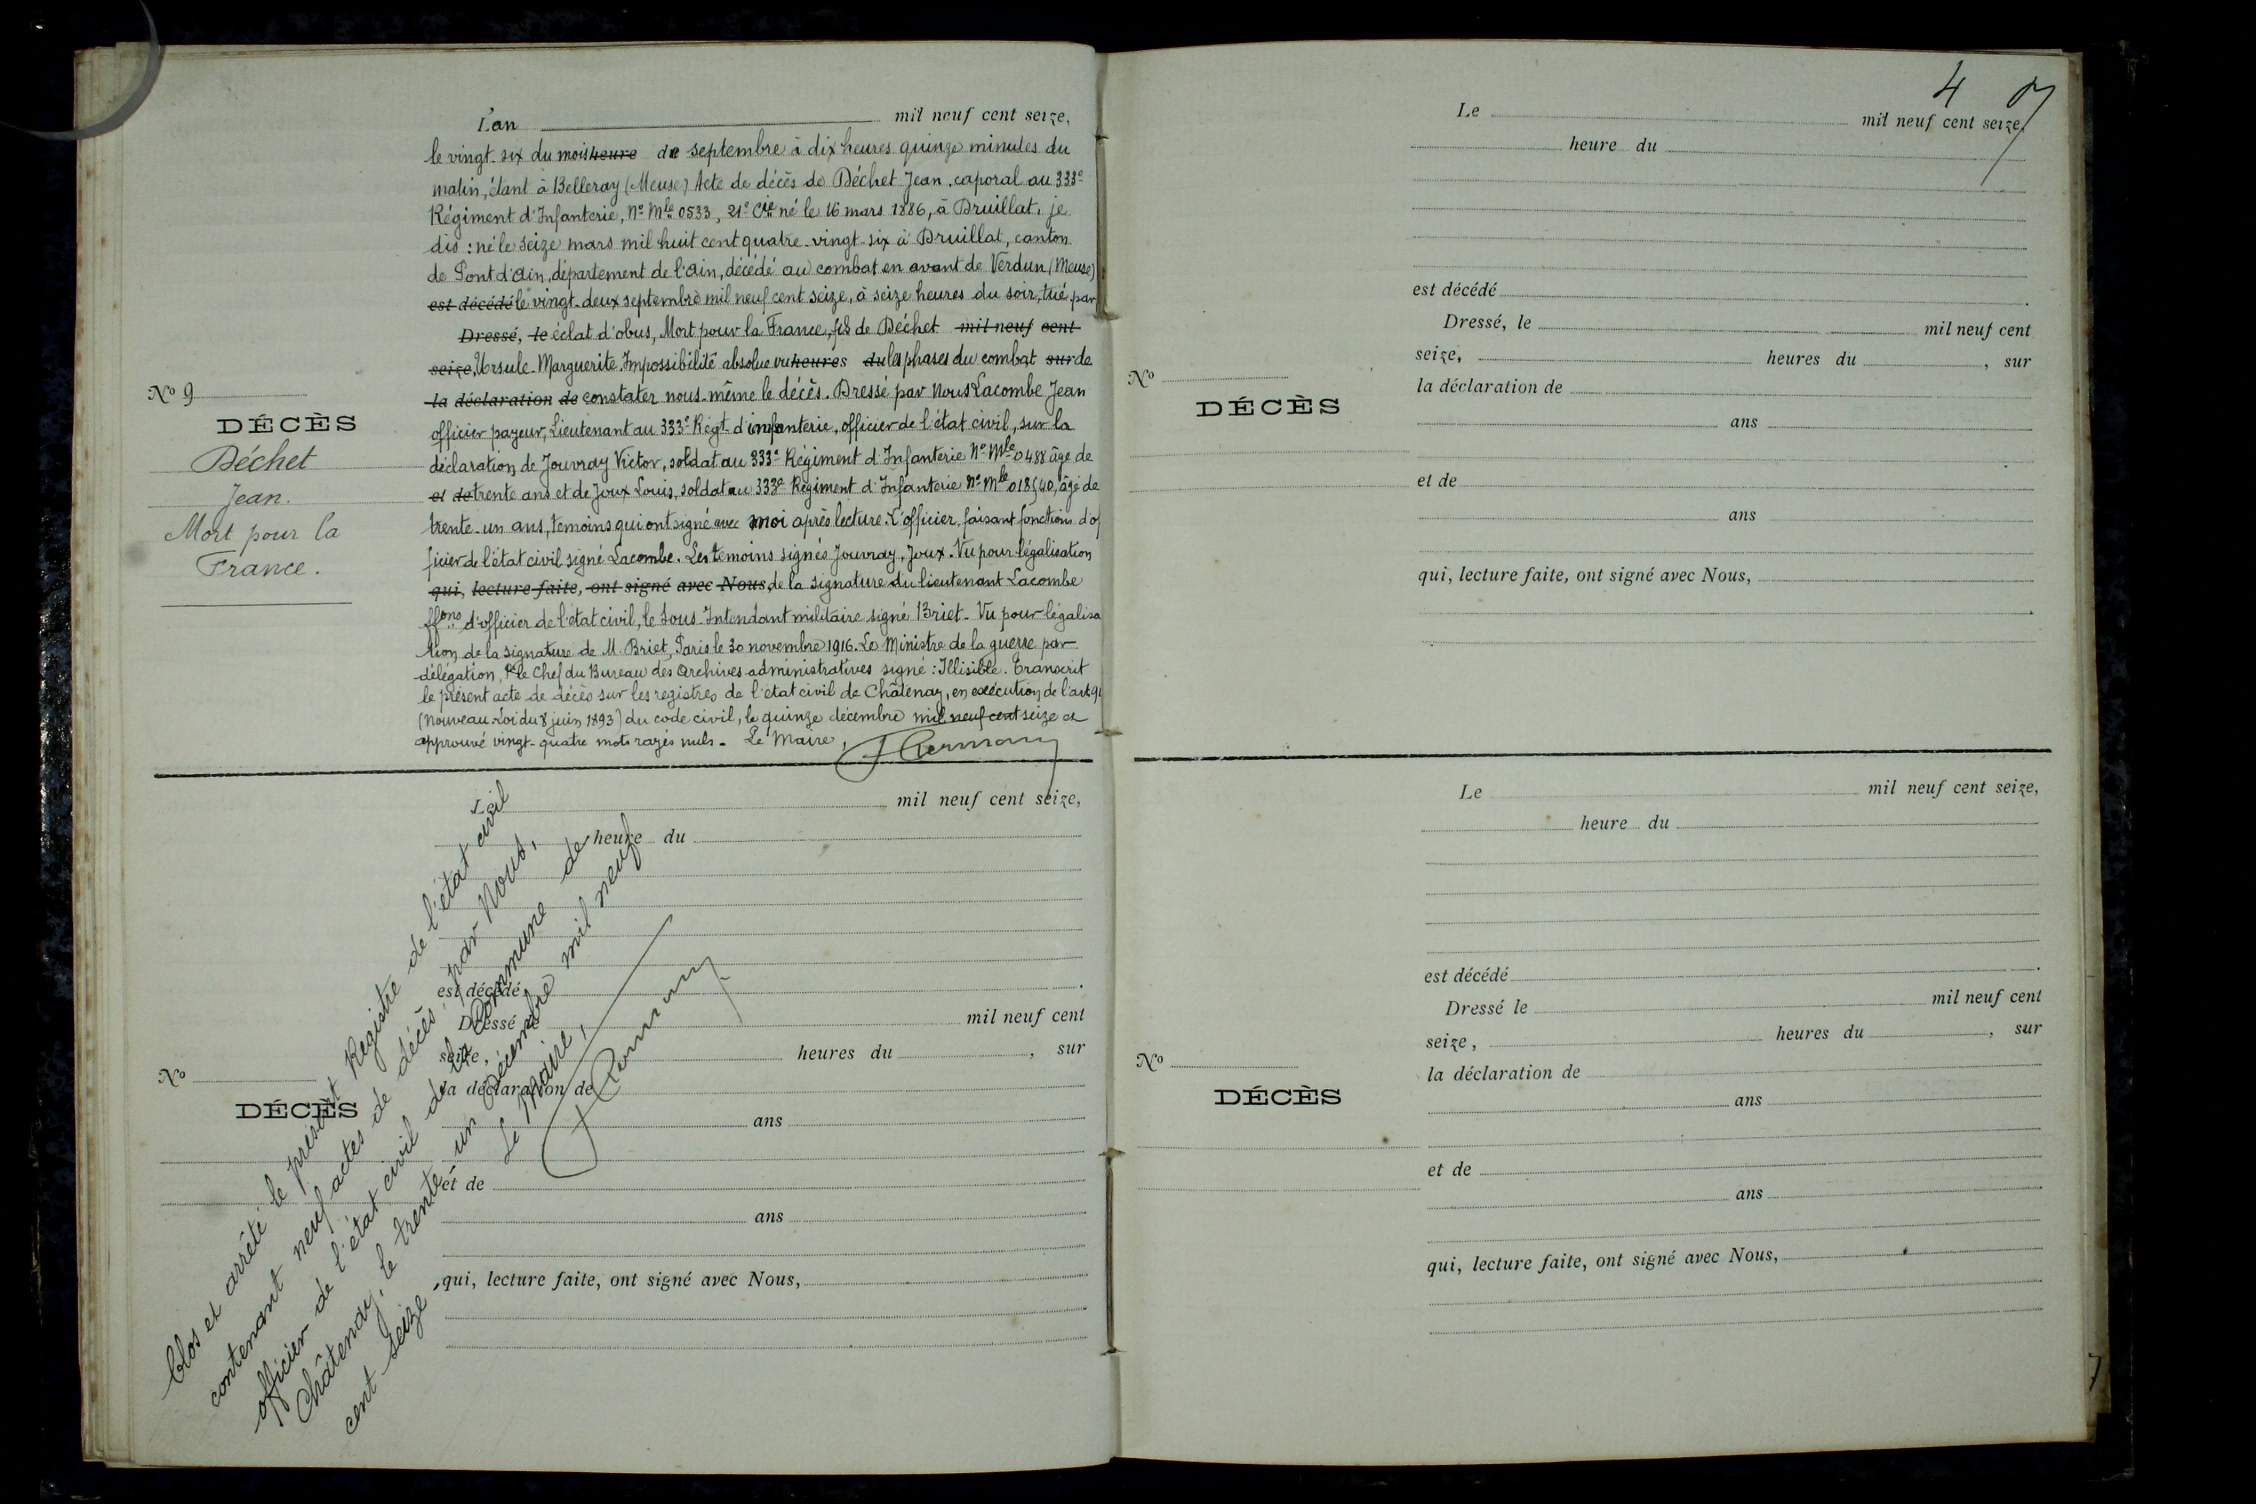 L'an mil neuf cent seize,
le vingt-six du mois heure de septembre à dix heures quinze minutes du
matin, étant à Belleray (Meuse) Acte de décès de Déchet Jean, caporal au 333e
Régiment d'Infanterie, No Mle 0533, 21e Cie né le 16 mars 1886, à Druillat, je
dis : né le seize mars mil huit cent quatre-vingt-six à Druillat, canton
de Pont d'Ain, département de l'Ain, décédé au combat en avant de Verdun (Meuse)
est décédé le vingt-deux septembre mil neuf cent seize, à seize heures du soir, tué par
Dressé, le éclat d'obus, Mort pour la France, fils de Déchet mil neuf cent
seize, Ursule-Marguerite. Impossibilité absolue vu heures du les phases du combat sur de
la déclaration de constater nous-même le décès. Dressé par Nous Lacombe Jean
officier payeur, Lieutenant au 333e Régt. d'infanterie, officier de l'état civil, sur la
déclaration de Jouvray Victor, soldat au 333e Régiment d'Infanterie No Mle 0488 âgé de
et de trente ans et de Joux Louis, soldat au 333e Régiment d'Infanterie No Mle 018540, âgé de
trente-un ans, témoins qui ont signé avec moi après lecture. L'officier faisant fonctions d'of
ficier de l'état civil signé Lacombe. Les témoins signés Jouvray, Joux. Vu pour légalisation
qui, lecture faite, ont signé avec Nous, de la signature du lieutenant Lacombe
ffons d'officier de l'état civil, le Sous-Intendant militaire signé Briet. Vu pour légalisa
tion de la signature de M. Briet, Paris le 30 novembre 1916. Le Ministre de la guerre par
délégation, Pr le Chef du Bureau des Archives administratives signé : Illisible. Transcrit
le présent acte de décès sur les registres de l'état civil de Châtenay, en exécution de l'art 94
(Nouveau Loi du 8 juin 1893) du code civil, le quinze décembre mil neuf cent seize et
approuvé vingt-quatre mots rayés nuls. Le Maire,
No 9
DÉCÈS
Déchet
Jean.
Mort pour la
France.
Le mil neuf cent seize,
heure du
est décédé
Dressé le mil neuf cent
seize, heures du , sur
la déclaration de
ans
et de
ans
qui, lecture faite, ont signé avec Nous,
No
DÉCÈS
Clos et arrêté le présent Registre de l'état civil
contenant neuf actes de décès, par Nous,
officier de l'état civil de la Commune de
Châtenay, le trente un Décembre mil neuf
cent seize,
Le Maire,
4 7
Le mil neuf cent seize,
heure du
est décédé
Dressé, le mil neuf cent
seize, heures du , sur
la déclaration de
ans
et de
ans
qui, lecture faite, ont signé avec Nous,
No
DÉCÈS
Le mil neuf cent seize,
heure du
est décédé
Dressé le mil neuf cent
seize, heures du , sur
la déclaration de
ans
et de
ans
qui, lecture faite, ont signé avec Nous,
No
DÉCÈS
7